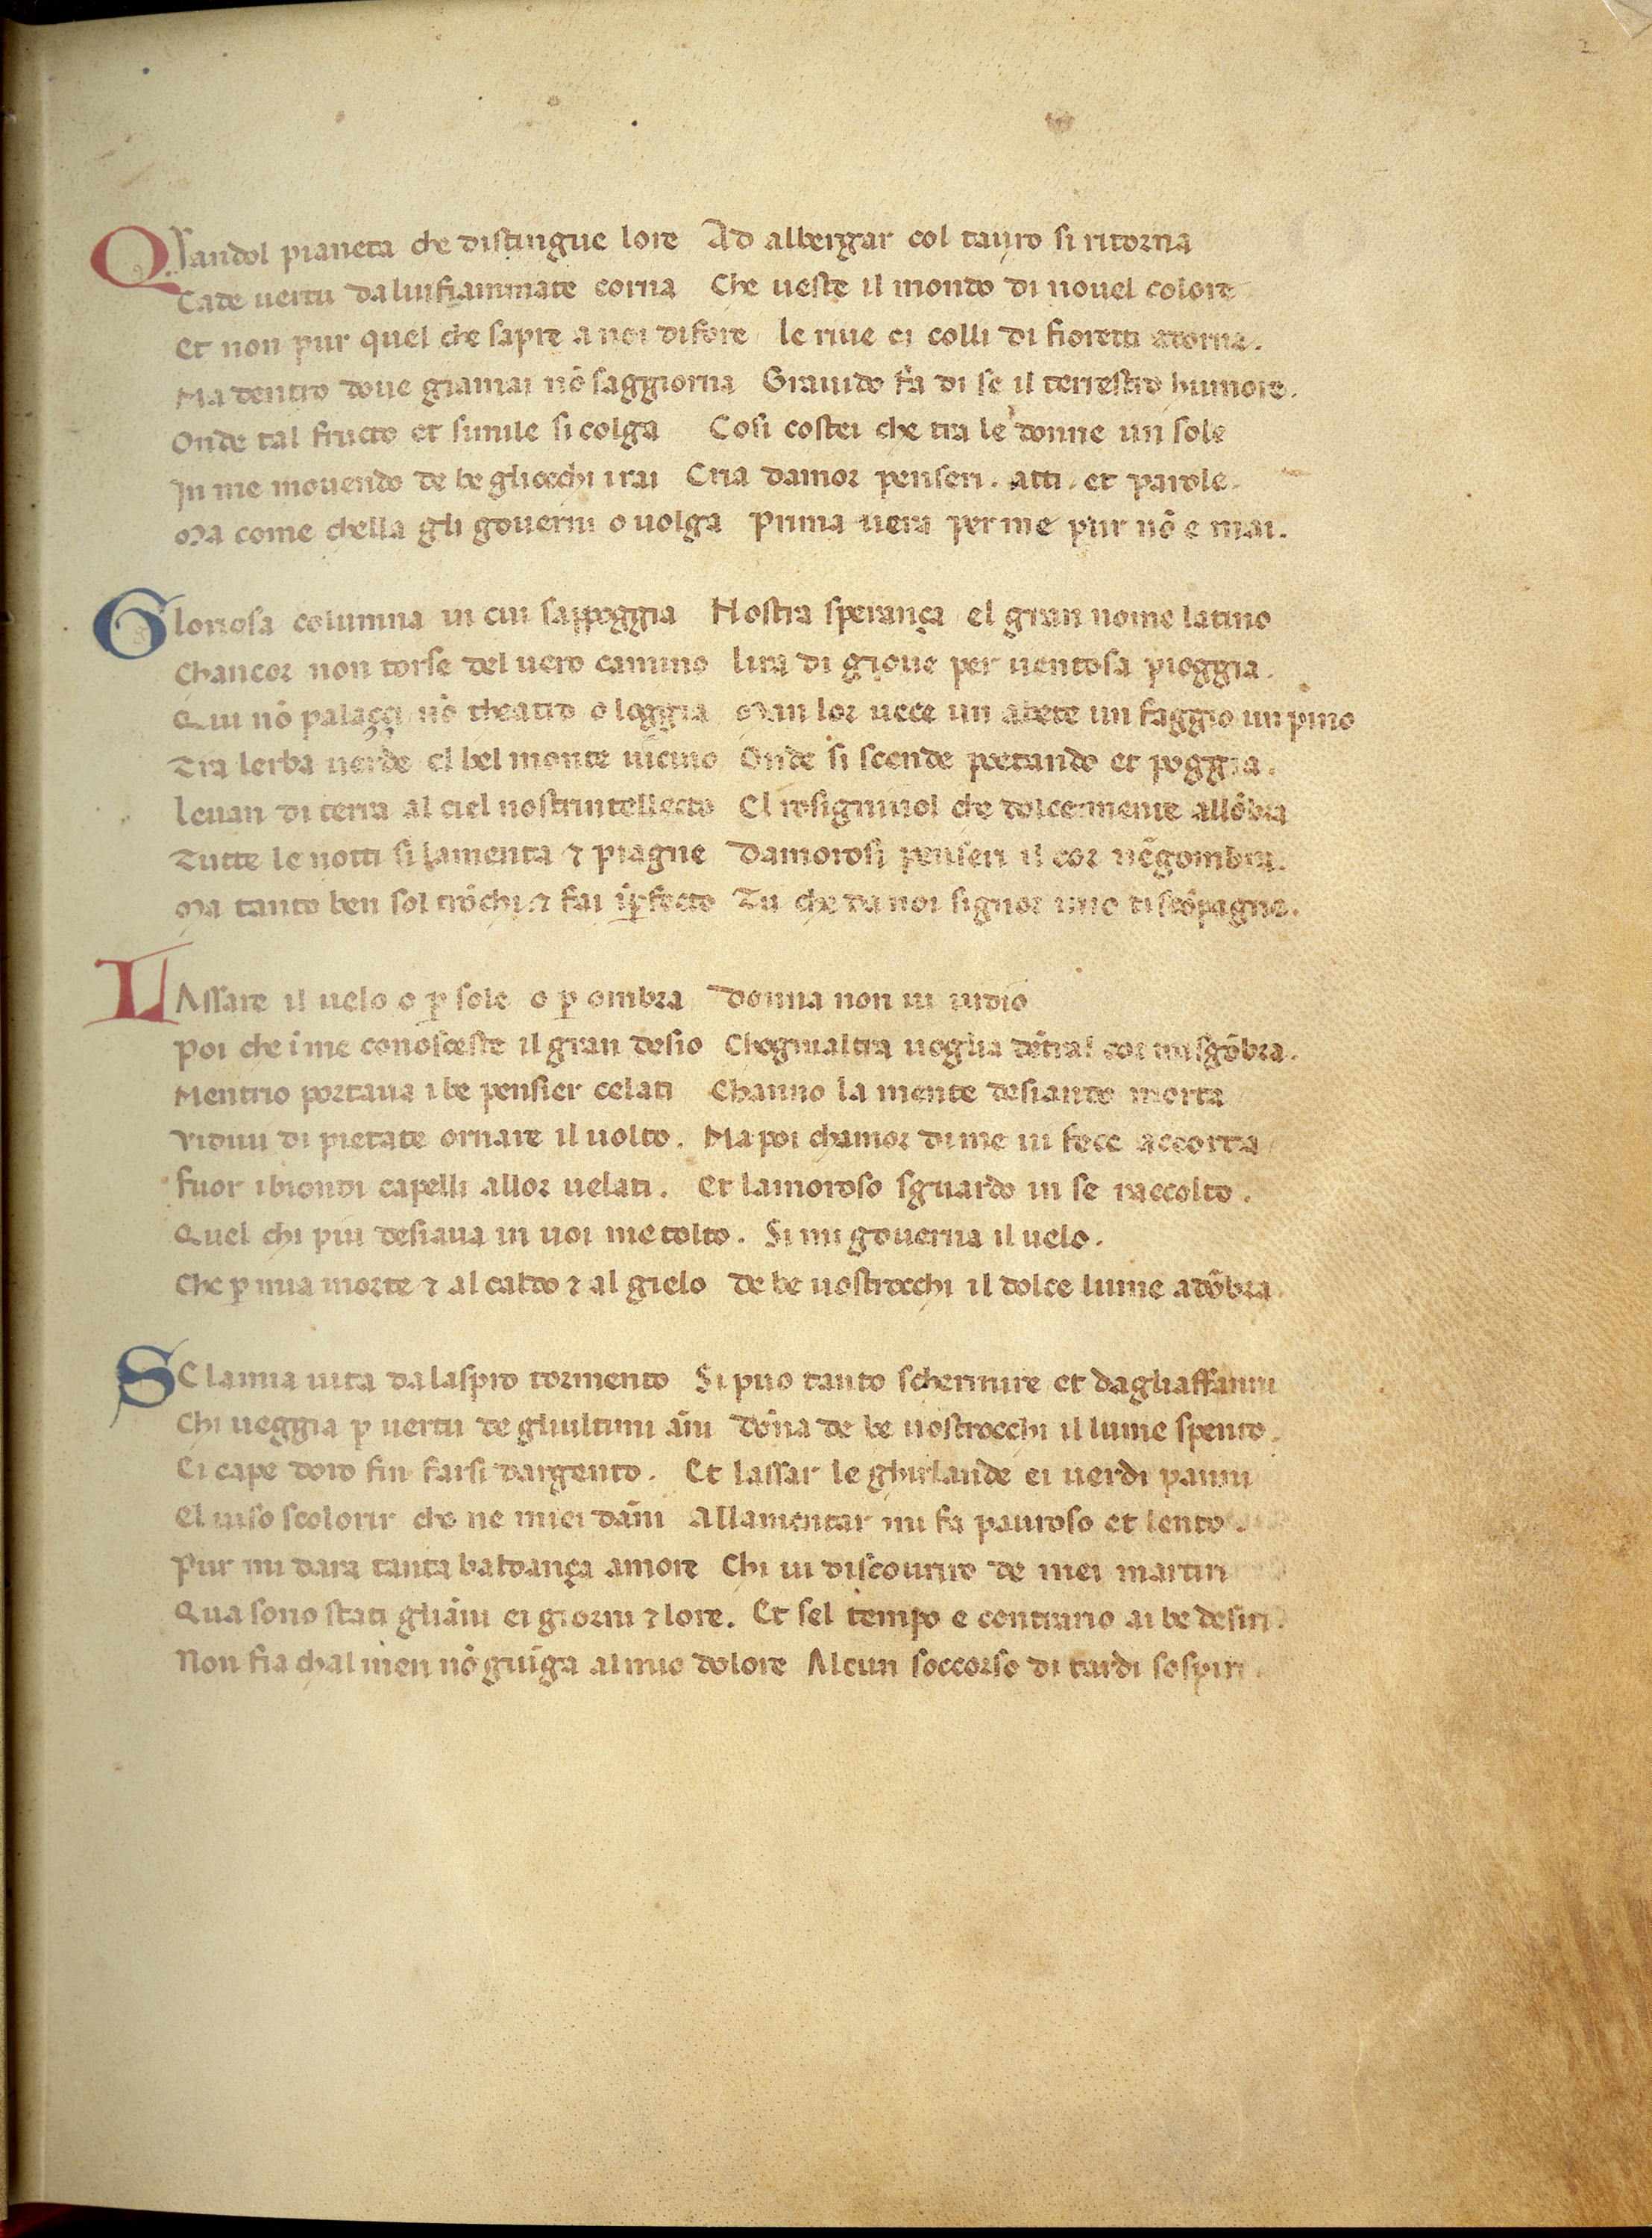 QVandol pianeta che distingue lore Ad albergar col tauro si ritorna
Cade uertu daluifiammate corna Che ueste il mondo di nouel colore
Et non pur quel che sapre a noi difore le riue ei colli di fioretti adorna.
Ma dentro doue giamai nō saggiorna Grauido fa di se il terrestro humore.
Onde tal fructo et simile si colga Cosi costei che tra le donne un sole
In me mouendo de be gliocchi i rai Cria damor penseri. atti. et parole.
Ma come chella gli gouerni o uolga Prima uera per me pur nō e mai.
Gloriosa columna in cui sappoggia Nostra sperança el gran nome latino
Chancor non torse del uero camino lira di gioue per uentosa pioggia.
Qui nō palaççi nō theatro o loggia Man lor uece un abete un faggio un pino
Tra lerba uerde el bel monte uicino Onde si scende poetando et poggia.
leuan di terra al ciel nostrintellecto El rosigniuol che dolcemente allōbra
Tutte le notti si lamenta ⁊ piagne Damorosi penseri il cor nēgombra.
Ma tanto ben sol trōchi ⁊ fai īꝑfecto Tu che da noi signor mio ti scōpagne.
LAssare il uelo o ꝑ sole o ꝑ ombra donna non ui uidio
Poi che ī me conosceste il gran desio Chogni altra uoglia dētral cor mi sgōbra.
Mentrio portaua i be pensier celati Channo la mente desiando morta
Vidiui di pietate ornare il uolto. Ma poi chamor di me ui fece accorta
fuor i biondi capelli allor uelati. Et lamoroso sguardo in se raccolto.
Quel chi piu desiaua in uoi me tolto. Si mi gouerna il uelo.
Che ꝑ mia morte ⁊ al caldo ⁊ al gielo de be uostrocchi il dolce lume adōbra.
SE lamia uita da laspro tormento Si puo tanto schermire et dagliaffanni
Chi ueggia ꝑ uertu de gliultimi āni dōna de be uostrocchi il lume spento.
Ei cape doro fin farsi dargento. Et lassar le ghirlande ei uerdi panni
El uiso scolorir che ne miei dāni Allamentar mi fa pauroso et lento.
Pur mi dara tanta baldança amore Chi ui discouriro de mei martiri
Qua sono stati gliāni ei giorni ⁊ lore. Et sel tempo e contrario ai be desiri.
Non fia chal men nō giūga al mio dolore Alcun soccorso di tardi sospiri.